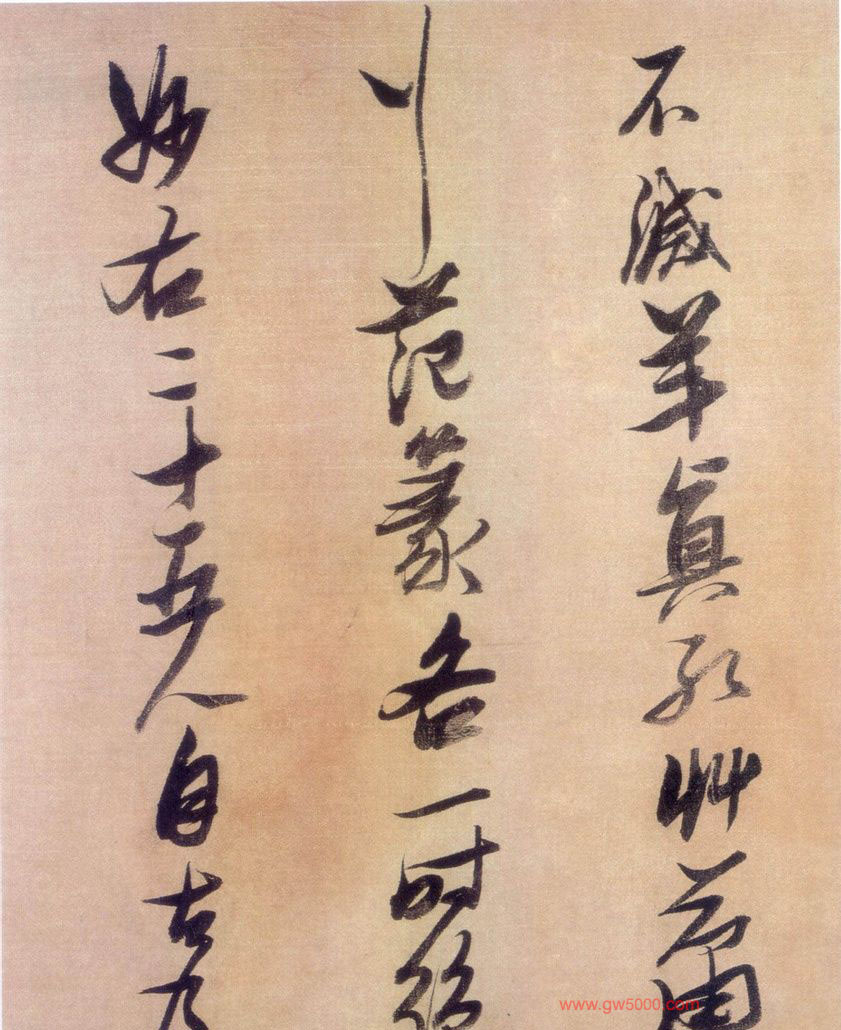 不減羊真孔艸蕭
行范篆各一时絕
妙右二十五人自古
www.gw5000.com